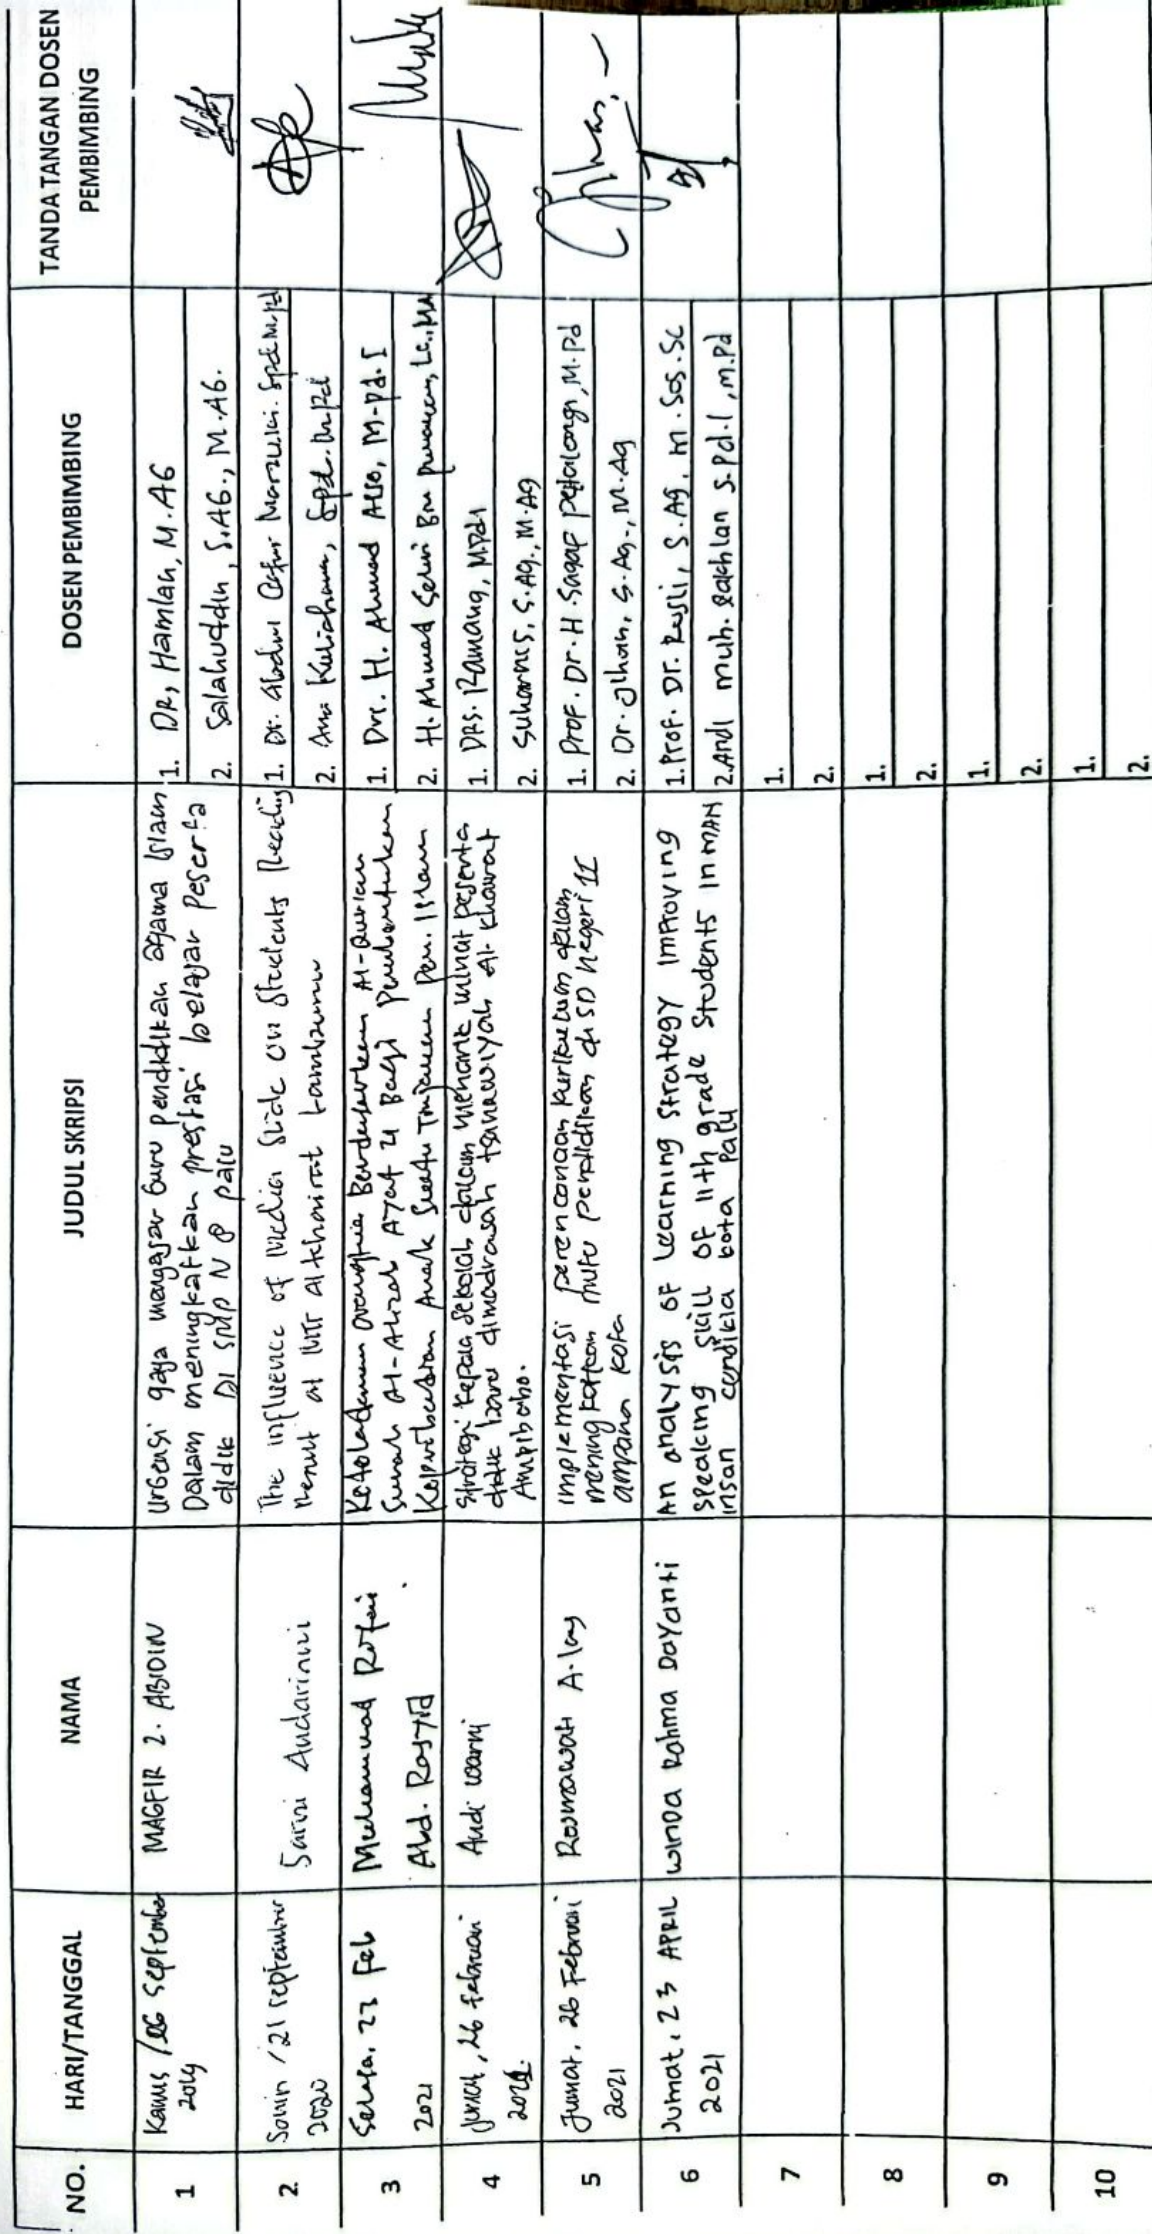 NO.
HARI/TANGGAL
NAMA
JUDUL SKRIPSI
DOSEN PEMBIMBING
TANDA TANGAN DOSEN
PEMBIMBING
1
Kamis / 26 September
2019
MAGFIR Z. ABIDIN
Urgensi gaya mengajar Guru pendidikan agama Islam
Dalam meningkatkan prestasi belajar peserta
didik DI SMP N 8 palu
1. DR, Hamlan, M.AG
2. Salahuddin, S.AG., M.AG.
2.
Senin / 21 september
2020
Sarni Andarini
The influence of Media Slide on Students Reading
Result at MTs Alkhairat
1. Dr. Abdul Gafur Marzuki. Spd. M.pd
2. Ana Kuliahana, Spd. M.pd
3
Selasa, 23 Feb
2021
Muhammad Rifai
Abd. Rasyid
Keteladanan Berdasarkan Al-Quran
Surah Al-Ahzab Ayat 21 Bagi Pembentukan
Kepribadian Anak Suatu Tinjauan Pen. Islam
1. Drs. H. Ahmad Asse, M.pd.I
2. H. Ahmad Sehri Bin Punawan, Lc., MA
4
Jumat, 26 Februari
2021.
Andi warni
Strategi Kepala Sekolah dalam menarik minat peserta
didik baru dimadrasah tsanawiyah Al-khairat
Ampibabo.
1. DRS. Ramang, M.Pd.I
2. Suharnis, S.Ag., M.Ag
5
Jumat, 26 Februari
2021
Rosmawati A.
Implementasi perencanaan kurikulum dalam
meningkatkan mutu pendidikan di SD Negeri 11
ampana kota
1. Prof. Dr. H. Sagaf pettalongi, M.Pd
2. Dr. Jihan, S.Ag., M.Ag
6
Jumat, 23 APRIL
2021
Winda Rahma Dayanti
An analysis of Learning Strategy Improving
speaking skill of 11th grade students in MAN
insan cendikia kota palu
1. Prof. Dr. Rusli, S.Ag, M.Sos.Sc
2. Andi muh. Dachlan S.pd.I, M.Pd
7
1.
2.
8
1.
2.
9
1.
2.
10
1.
2.